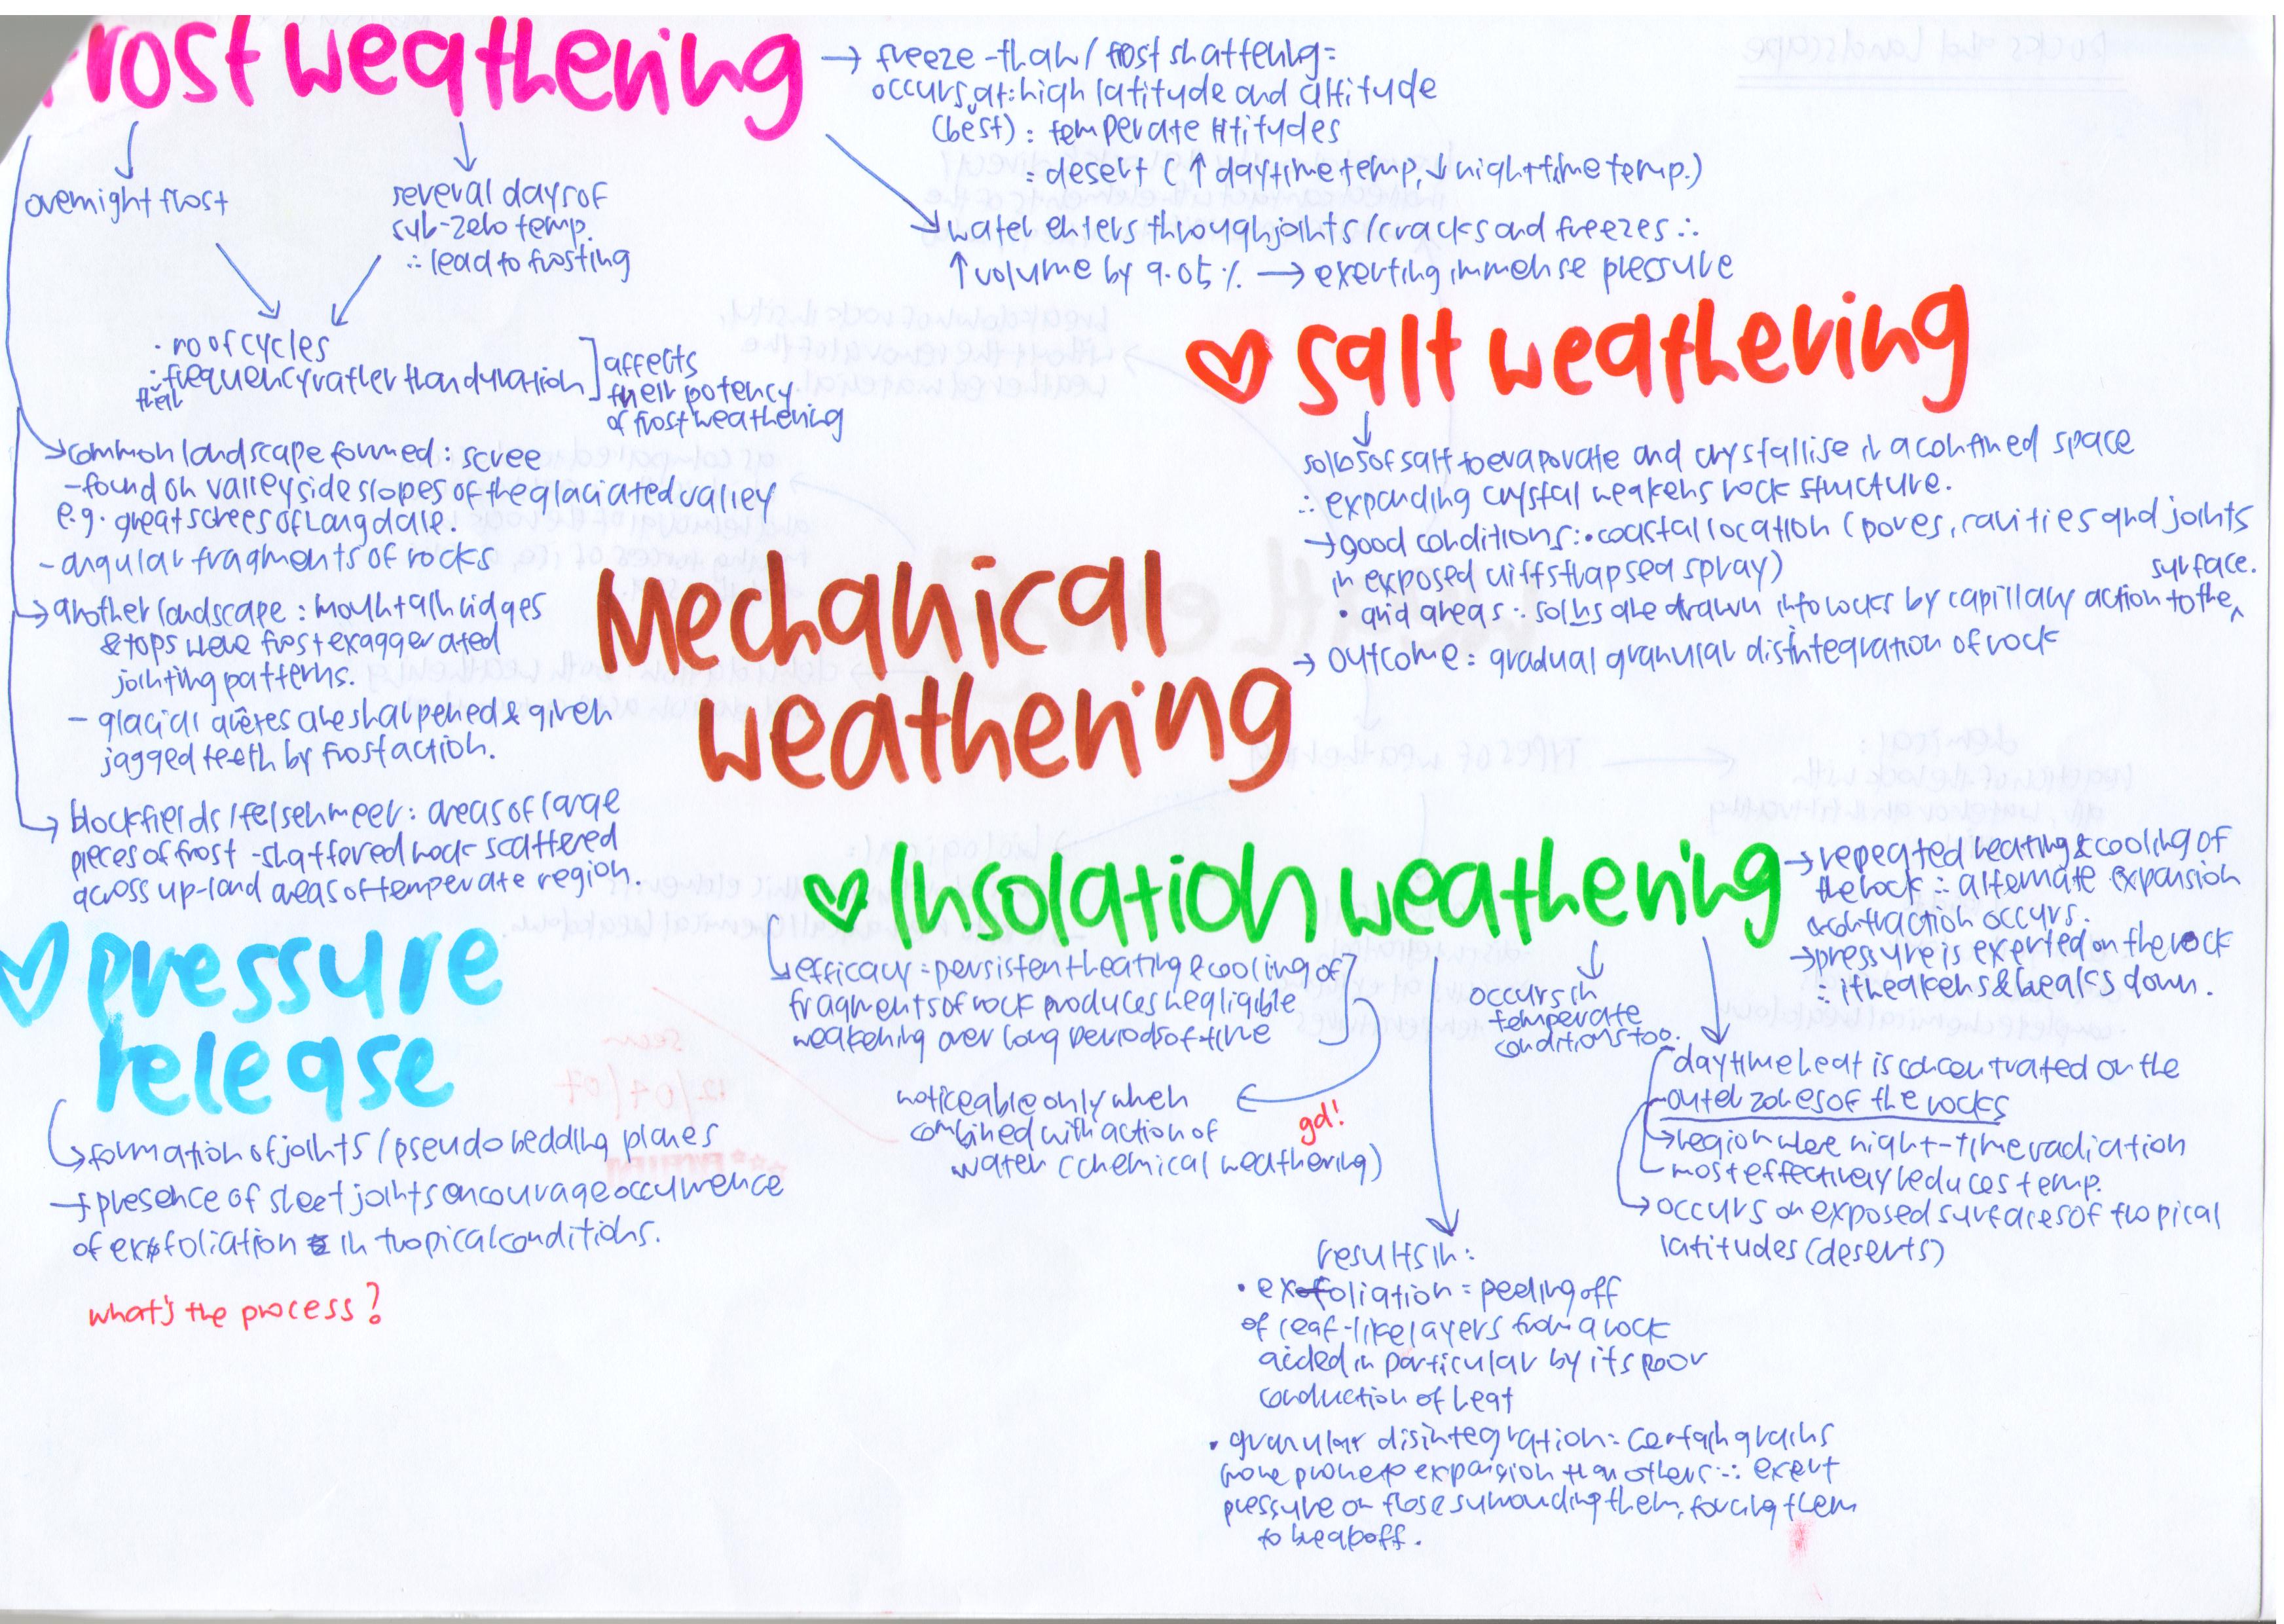 Frost weathering
→ freeze-thaw / frost shattering =
occurs at: high latitude and altitude
(best) : temperate latitudes
: desert (↑ daytime temp, ↓ night time temp.)
→ water enters through joints / cracks and freezes ∴
↑ volume by 9.05% → exerting immense pressure
overnight frost
several days of
sub-zero temp.
∴ lead to frosting
· no of cycles
· frequency rather than duration
their
affects
their potency
of frost weathering
→ common landscape formed : scree
- found on valley side slopes of the glaciated valley
e.g. great screes of Langdale.
- angular fragments of rocks
→ another landscape : mountain ridges
& tops were frost exaggerated
jointing patterns.
- glacial arêtes are sharpened & given
jagged teeth by frost action.
→ blockfields / felsenmeer : areas of large
pieces of frost-shattered rock scattered
across up-land areas of temperate region.
♡ salt weathering
solns of salt to evaporate and crystallise in a confined space
∴ expanding crystal weakens rock structure.
→ good conditions : • coastal location (pores, cavities and joints
in exposed cliffs trap sea spray)
• arid areas : solns are drawn into rocks by capillary action to the surface.
→ outcome : gradual granular disintegration of rock
Mechanical
weathering
♡ Insolation weathering
→ repeated heating & cooling of
the rock ∴ alternate expansion
contraction occurs.
→ pressure is exerted on the rock
∴ it weakens & breaks down.
→ efficacy : persistent heating & cooling of
fragments of rock produces negligible
weakening over long periods of time
noticeable only when
combined with action of
water (chemical weathering)
gd!
occurs in
temperate
conditions too.
daytime heat is concentrated on the
outer zones of the rocks
→ region were night-time radiation
most effectively reduces temp.
→ occurs on exposed surfaces of tropical
latitudes (deserts)
results in :
• exfoliation = peeling off
of leaf-like layers from a rock
aided in particular by its poor
conduction of heat
• granular disintegration : certain grains
more prone to expansion than others ∴ exert
pressure on those surrounding them, forcing them
to break off.
♡ pressure
release
→ formation of joints / pseudo bedding planes
→ presence of sheet joints encourage occurrence
of exfoliation in tropical conditions.
what's the process?